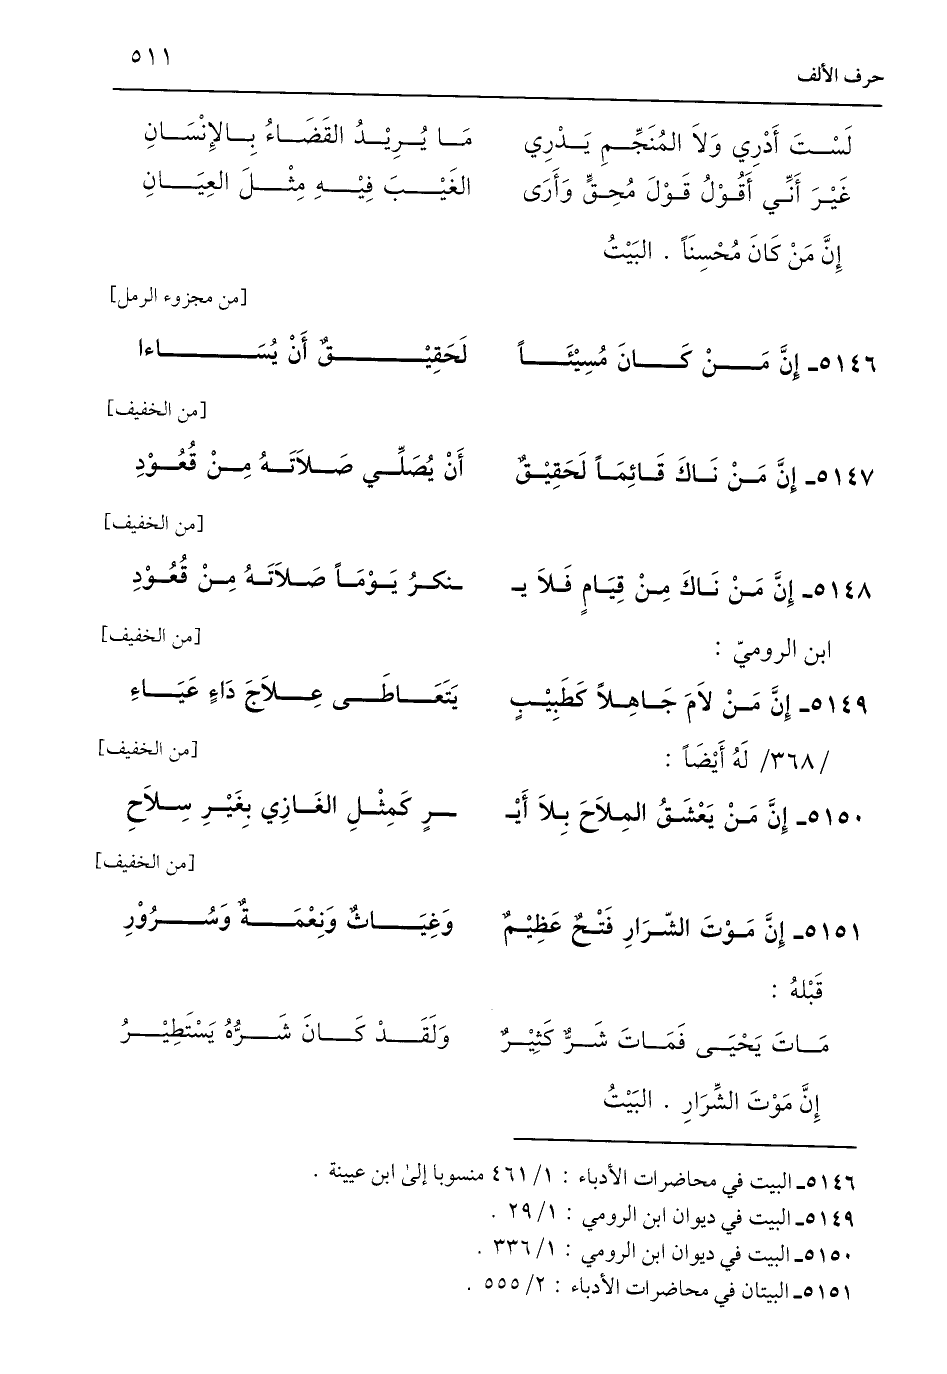 حرف الألف ٥١١
لَسْتَ أَدْرِي وَلاَ المُنَجِّمِ يَدْرِي مَا يُرِيْدُ القَضَاءُ بِالإِنْسَانِ
غَيْرَ أَنِّي أَقُوْلُ قَوْلَ مُحِقٍّ وَأَرَى الغَيْبَ فِيْهِ مِثْلَ العِيَانِ
إِنَّ مَنْ كَانَ مُحْسِنَاً . البَيْتُ
[من مجزوء الرمل]
٥١٤٦ـ إِنَّ مَنْ كَانَ مُسِيْئَاً لَحَقِيْقٌ أَنْ يُسَاءا
[من الخفيف]
٥١٤٧ـ إِنَّ مَنْ نَاكَ قَائِمَاً لَحَقِيْقٌ أَنْ يُصَلِّي صَلاَتَهُ مِنْ قُعُوْدِ
[من الخفيف]
٥١٤٨ـ إِنَّ مَنْ نَاكَ مِنْ قِيَامٍ فَلاَ يـ ـنكرُ يَوْمَاً صَلاَتَهُ مِنْ قُعُوْدِ
[من الخفيف]
ابن الروميّ :
٥١٤٩ـ إِنَّ مَنْ لاَمَ جَاهِلاً كَطَبِيْبٍ يَتَعَاطَى عِلاَجَ دَاءٍ عَيَاءِ
[من الخفيف]
/٣٦٨/ لَهُ أَيْضَاً :
٥١٥٠ـ إِنَّ مَنْ يَعْشَقُ المِلاَحَ بِلاَ أَيْـ ـرٍ كَمِثْلِ الغَازِي بِغَيْرِ سِلاَحِ
[من الخفيف]
٥١٥١ـ إِنَّ مَوْتَ الشّرَارِ فَتْحٌ عَظِيْمٌ وَغِيَاثٌ وَنِعْمَةٌ وَسُرُوْرِ
قَبْلهُ :
مَاتَ يَحْيَى فَمَاتَ شَرٌّ كَثِيْرٌ وَلَقَدْ كَانَ شَرُّهُ يَسْتَطِيْرُ
إِنَّ مَوْتَ الشِّرَارِ . البَيْتُ
٥١٤٦ـ البيت في محاضرات الأدباء : ١/ ٤٦١ منسوبا إلى ابن عيينة .
٥١٤٩ـ البيت في ديوان ابن الرومي : ١/ ٢٩ .
٥١٥٠ـ البيت في ديوان ابن الرومي : ١/ ٣٣٦ .
٥١٥١ـ البيتان في محاضرات الأدباء : ٢/ ٥٥٥ .